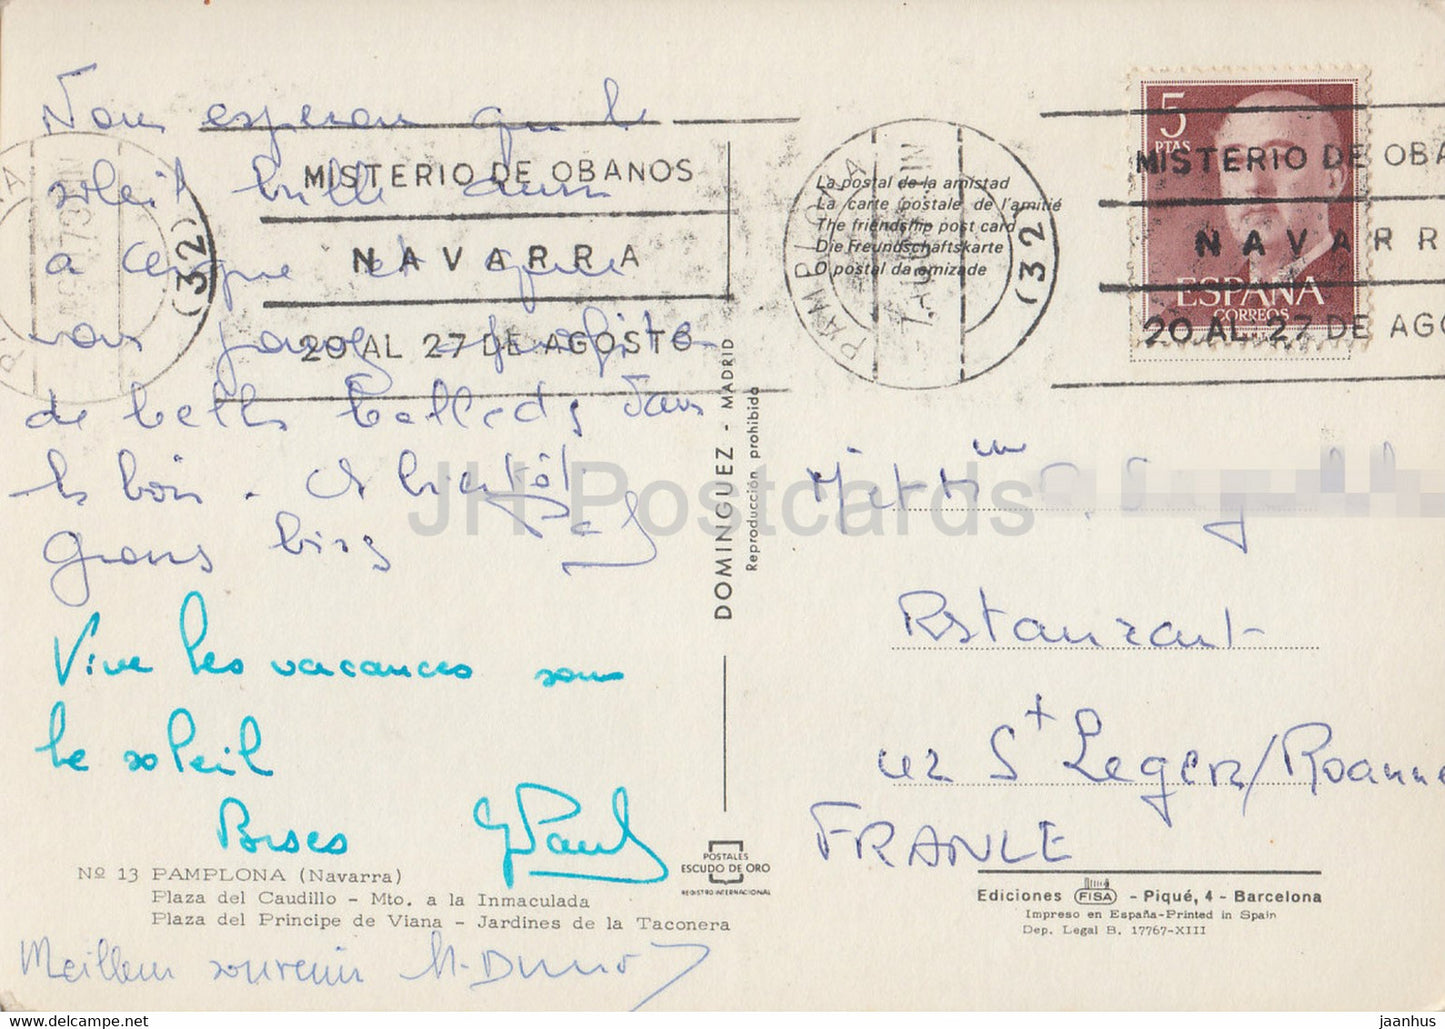 Nous esperons que le
soleil brille dans
a et que
vous profite
de belles ballades dans
les bois. A bientôt
grosses bises
Vive les vacances sous
le soleil
Bises Paul
Nº 13 PAMPLONA (Navarra)
Plaza del Caudillo - Mto. a la Inmaculada
Plaza del Príncipe de Viana - Jardines de la Taconera
Meilleur souvenir
MISTERIO DE OBANOS
NAVARRA
20 AL 27 DE AGOSTO
(32)
DOMINGUEZ - MADRID
Reproducción prohibida
POSTALES
ESCUDO DE ORO
REGISTRO INTERNACIONAL
PAMPLONA
(32)
La postal de la amistad
La carte postale de l'amitié
The friendship post card
Die Freundschaftskarte
O postal da amizade
5
PTAS
ESPAÑA
CORREOS
MISTERIO DE OBA
NAVARR
20 AL 27 DE AGO
Restaurant
42 St Leger/Roanne
FRANCE
Ediciones FISA - Piqué, 4 - Barcelona
Impreso en España-Printed in Spain
Dep. Legal B. 17767-XIII
JH Postcards
jaanhus